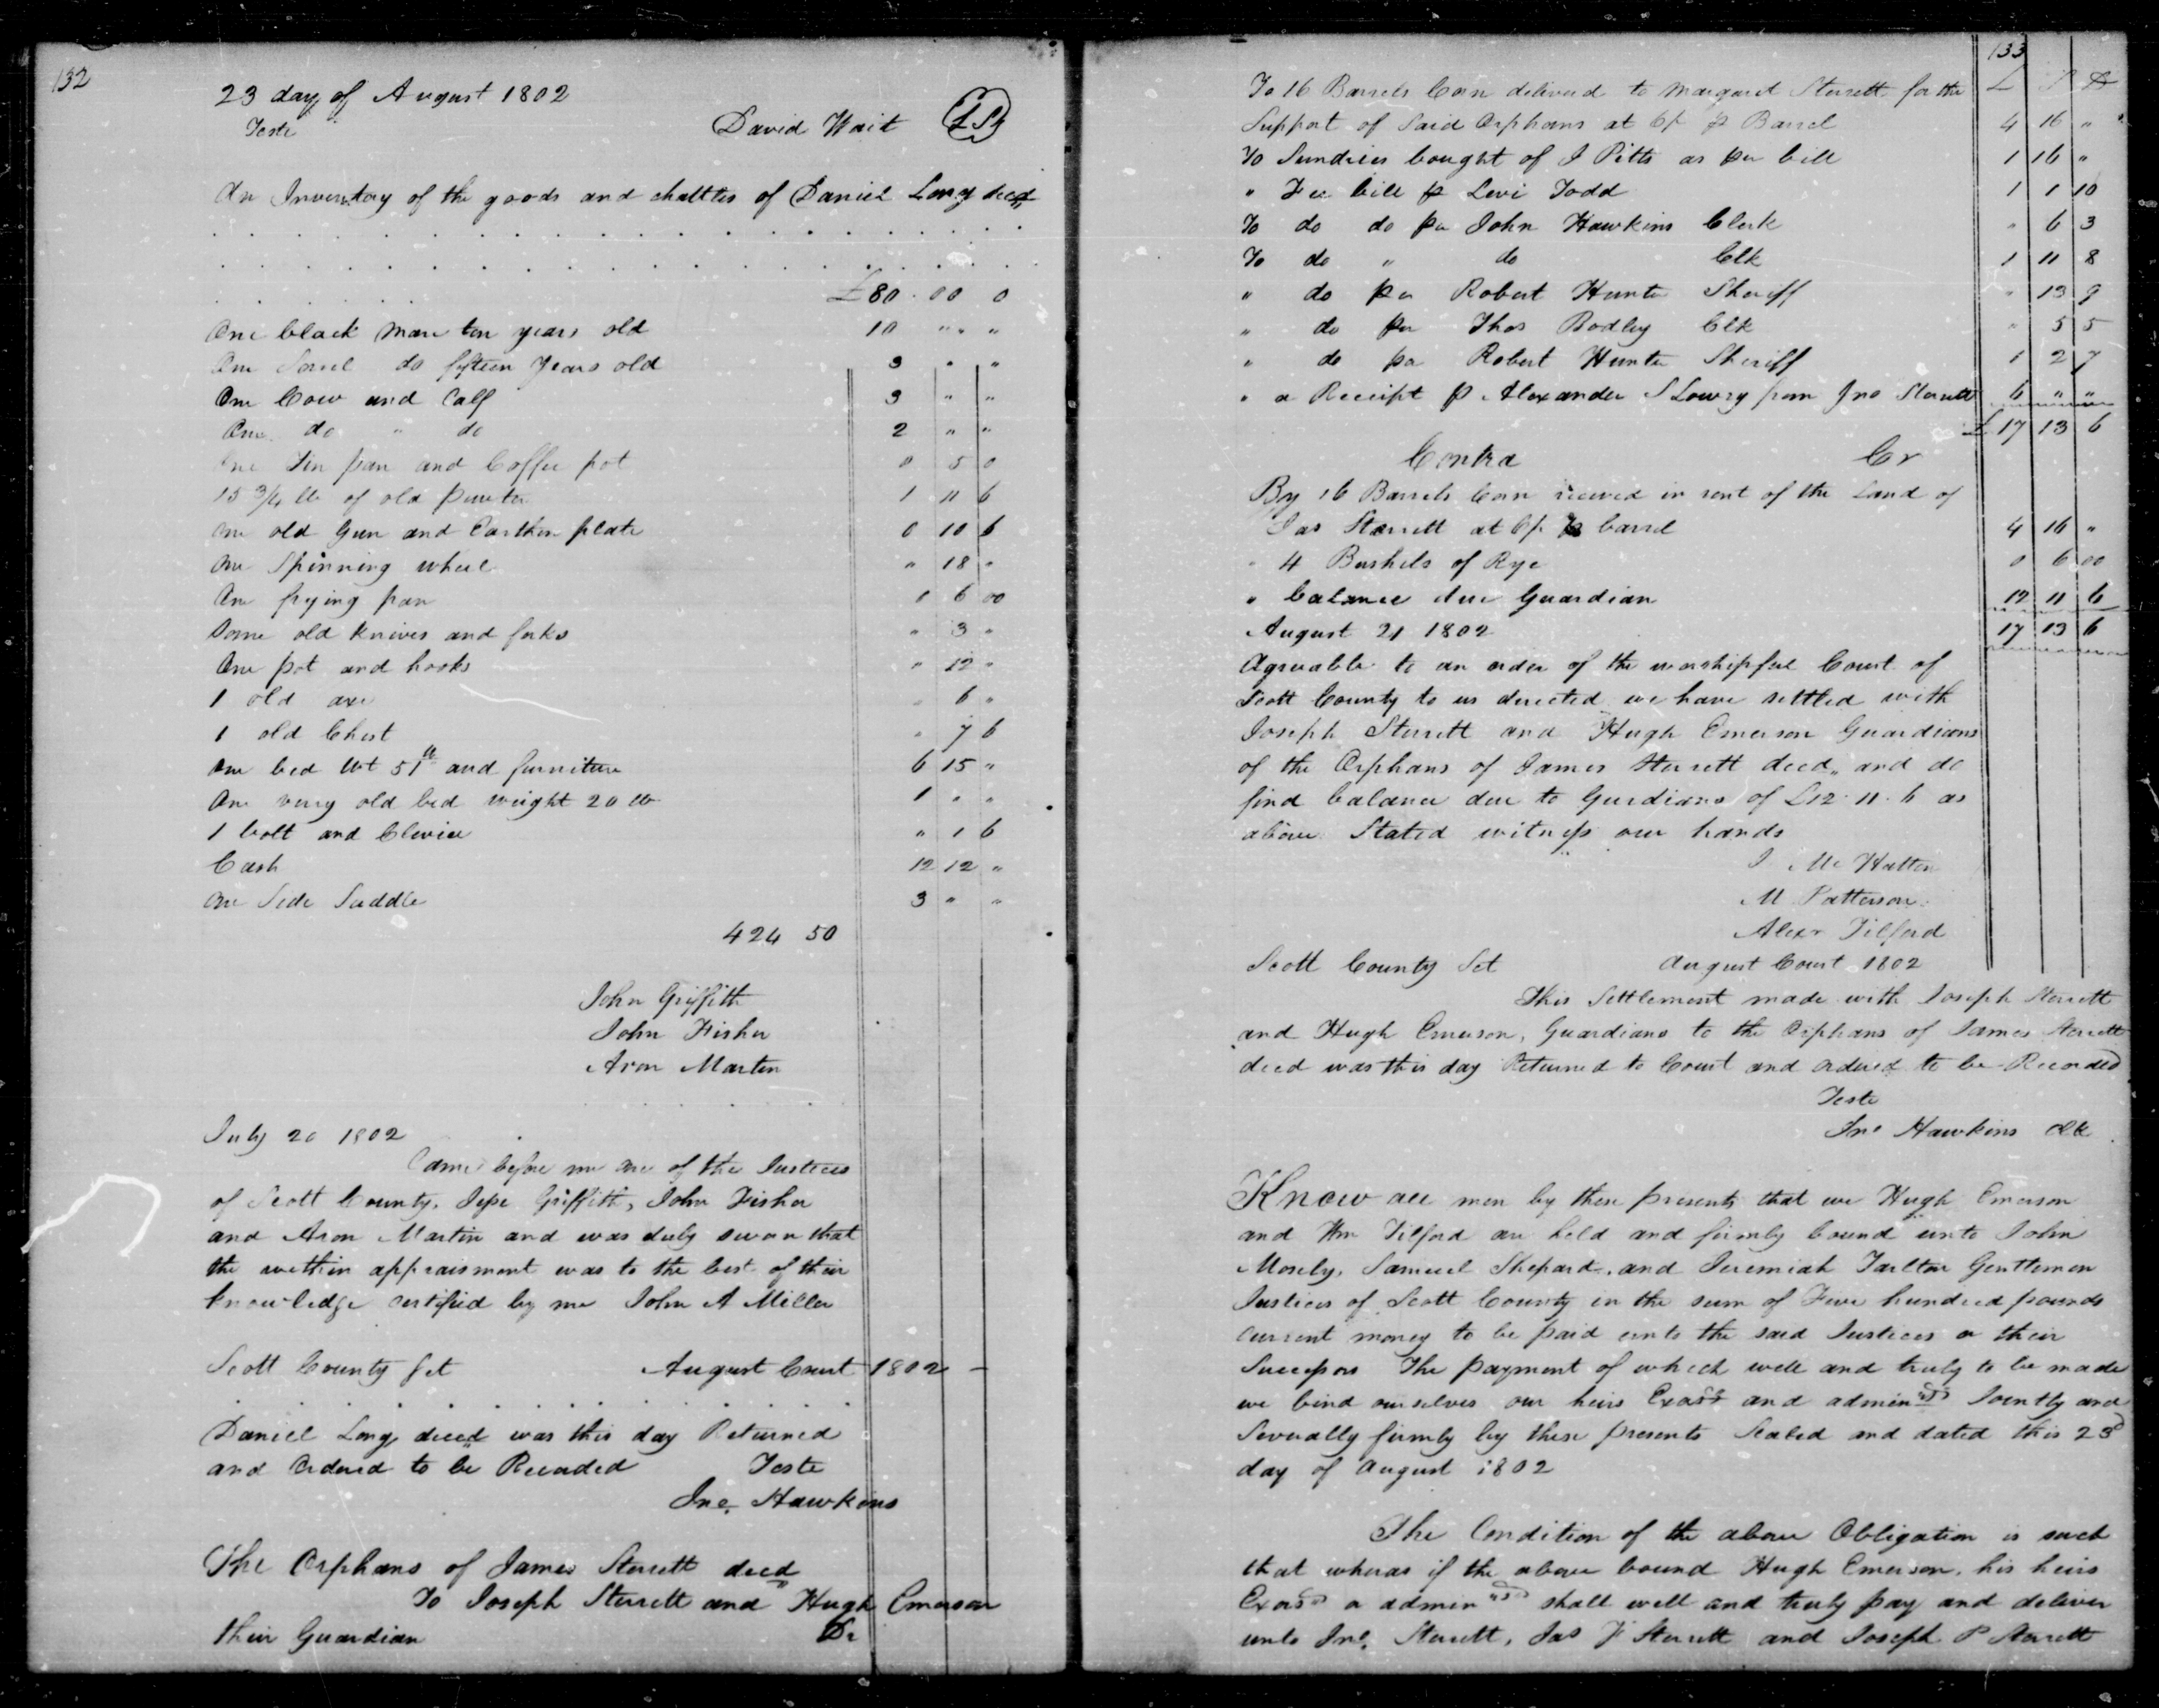 132
23 day of August 1802
Teste
David Wait LS
An Inventory of the goods and chattles of Daniel Long decd
. . . . . . . . . . . . . . . . . .
. . . . . . . . . . . . . . . . . .
. . . . . £80 . 00 0
One black mare ten years old 10 " " "
One Sorrel do fifteen years old 3 " "
One Cow and Calf 3 " "
One do " do 2 " "
One Tin pan and Coffee pot 0 5 0
15 3/4 lb of old pewter 1 11 6
one old Gun and Earthen plate 0 10 6
One Spinning wheel " 18 "
One frying pan 0 6 00
Some old knives and forks " 3 "
One pot and hooks " 12 "
1 old axe " 6 "
1 old Chest " 7 6
One bed Wt 51 lb and furniture 6 15 "
One very old bed weight 20 lb 1 " "
1 bolt and Clevice " 1 6
Cash 12 12 "
One Side Saddle 3 " "
424 50
John Griffith
John Fisher
Aron Martin
July 20 1802
Came before me one of the Justices
of Scott County, Jesse Griffith, John Fisher
and Aron Martin and was duly sworn that
the within appraisment was to the best of their
knowledge certified by me John A Miller
Scott County Sct August Court 1802 -
. . . . . . . . . . . . . .
Daniel Long deced was this day Returned
and Ordered to be Recorded Teste
Jno. Hawkins
The Orphans of James Sterrett decd
To Joseph Sterrett and Hugh Emerson
their Guardian Dr
133
£ S D
To 16 Barrels Corn deliverd to Margaret Sterrett for the
Support of Said Orphans at 6/ p Barrel 4 16 "
To Sundries bought of J Pitts as per bill 1 16 "
" Fee bill p Levi Todd 1 1 10
To do do per John Hawkins Clerk " 6 3
To do " do Clk 1 11 8
" do per Robert Hunter Sheriff " 13 9
" do per Thos Bodley Clk " 5 5
" do per Robert Hunter Sheriff 1 2 7
" a Receipt p Alexander S Lowry from Jno Sterrett 6 " "
£ 17 13 6
Contra Cr
By 16 Barrels Corn received in rent of the Land of
Jas Sterrett at 6/ p barrel 4 16 "
" 4 Bushels of Rye 0 6 00
" balance due Guardian 12 11 6
August 21 1802 17 13 6
Agreable to an order of the worshipful Court of
Scott County to us directed we have settled with
Joseph Sterrett and Hugh Emerson Guardians
of the Orphans of James Sterrett deced,, and do
find balance due to Gurdians of £12 . 11 . 6 as
above Stated witness our hands
J Mc Hatton
M Patterson
Alexr Tilford
Scott County Sct August Court 1802
This Settlement made with Joseph Sterrett
and Hugh Emerson, Guardians to the Orphans of James Sterrett
deced was this day Returned to Court and ordered to be Recorded
Teste
Jno Hawkins clk
Know all men by these presents that we Hugh Emerson
and Wm Tilford are held and firmly bound unto John
Mosely, Samuel Shepard, and Jeremiah Tarlton Gentlemen
Justices of Scott County in the sum of Five hundred pounds
current money to be paid unto the said Justices or their
Successors The payment of which well and truly to be made
we bind ourselves our heirs Exors and admin Jointly and
Severally firmly by these presents Sealed and dated this 23d
day of August 1802
The Condition of the above Obligation is such
that wheras if the above bound Hugh Emerson, his heirs
Exors or admin shall well and truly pay and deliver
unto Jno. Sterrett, Jas F Sterrett and Joseph P Sterrett